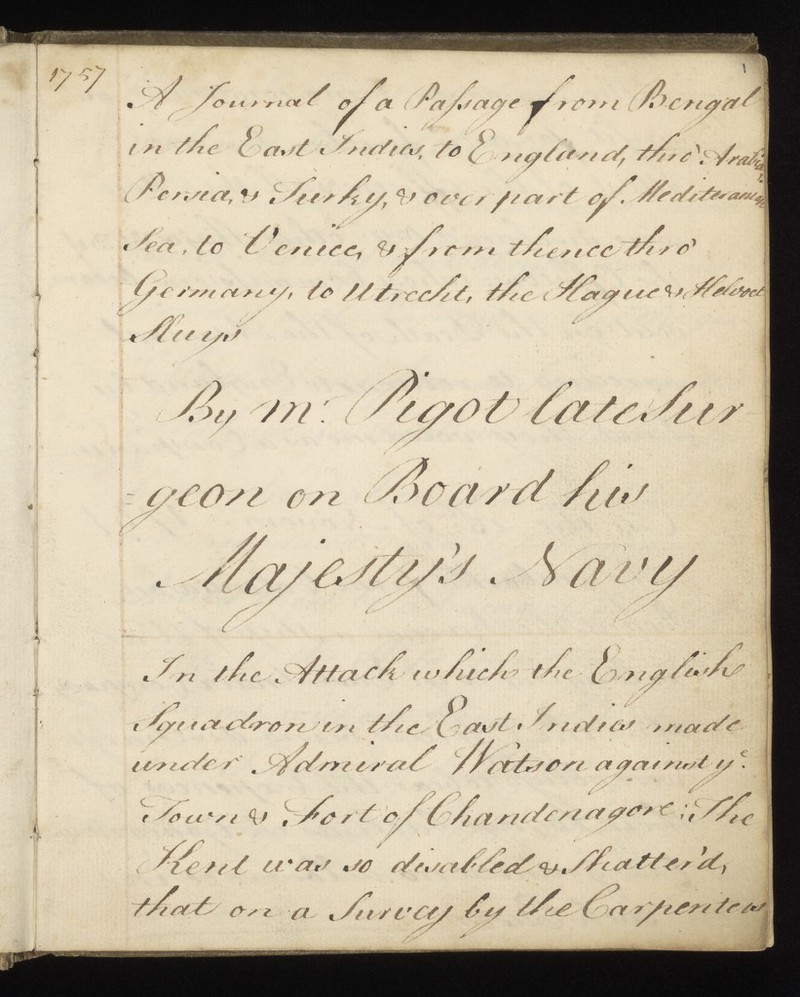 1757
1
A Journal of a Passage from Bengal
in the East Indies, to England, thro' Arabia
Persia, & Turky, & over part of Mediteranean
Sea, to Venice, & from thence thro'
Germany, to Utrecht, the Hague & Helvoet
Sluys
By Mr. Pigot late Sur
=geon on Board his
Majesty's Navy
In the Attack which the English
Squadron in the East Indies made
under Admiral Watson against ye.
Town & Fort of Chandenagore; The
Kent was so disabled & Shatter'd,
that on a Survey by the Carpenters